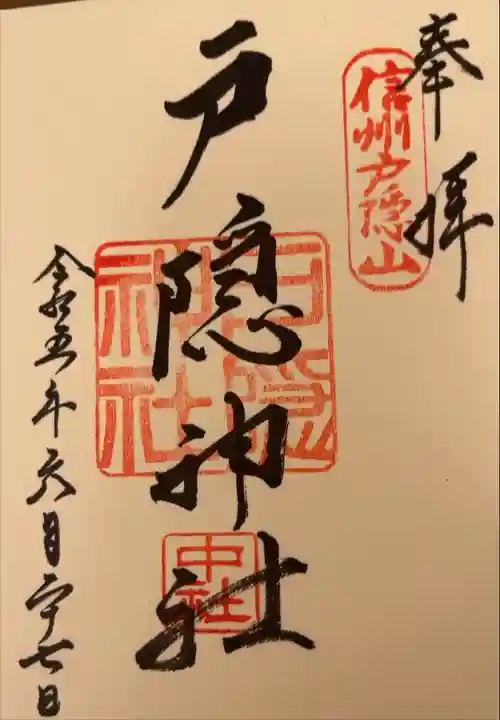 奉拝
信州戸隠山
戸隠神社
戸隠神社
中社
令和五年六月二十七日